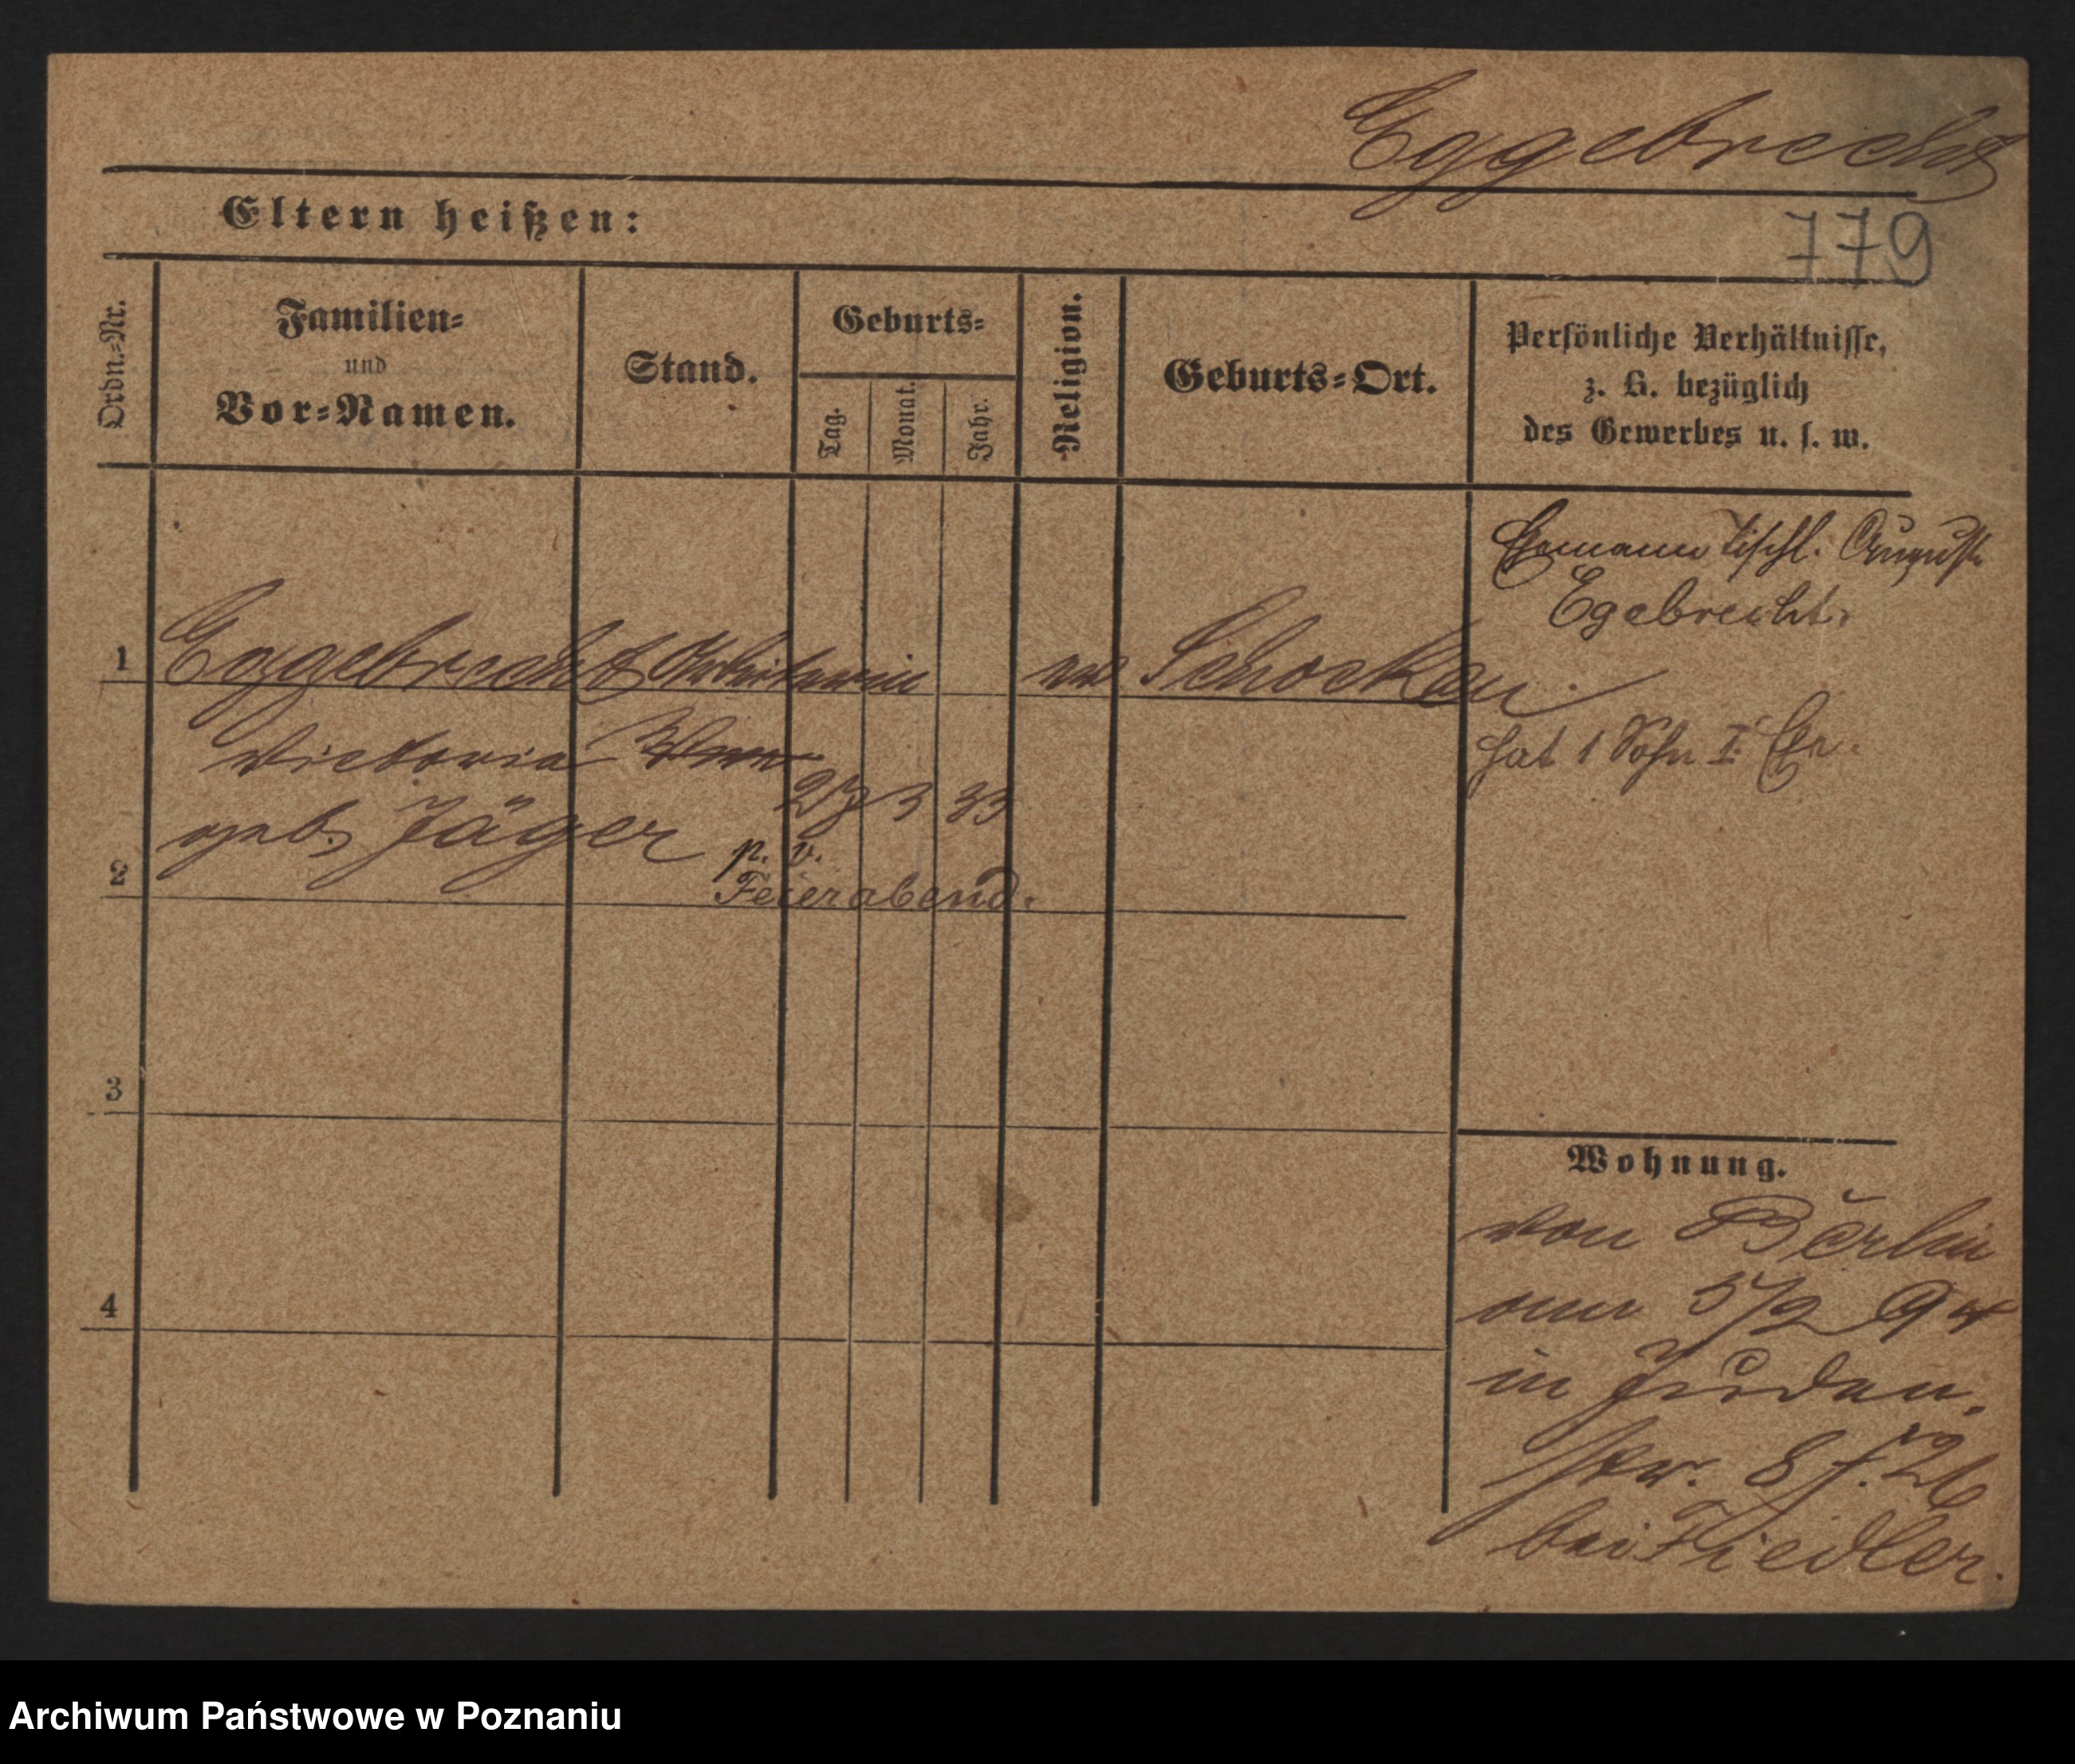 Eggebrecht
779
Eltern heißen:
Ordn.-Nr.
Familien-
und
Vor-Namen.
Stand.
Geburts-
Tag.
Monat.
Jahr.
Religion.
Geburts-Ort.
Persönliche Verhältnisse,
z. B. bezüglich
des Gewerbes u. s. w.
Ehemann Tischl. August
Egebrecht.
1 Eggebrecht Arbeiterin Schocken
Victoria
geb. Jäger 27 3 33
hat 1 Sohn I. Ehe.
2 p. v.
Feierabend.
3
4
Wohnung.
von Berlin
am 5/2 94
in Juden-
str. 8 f. 26
bei Fiedler.
Archiwum Państwowe w Poznaniu